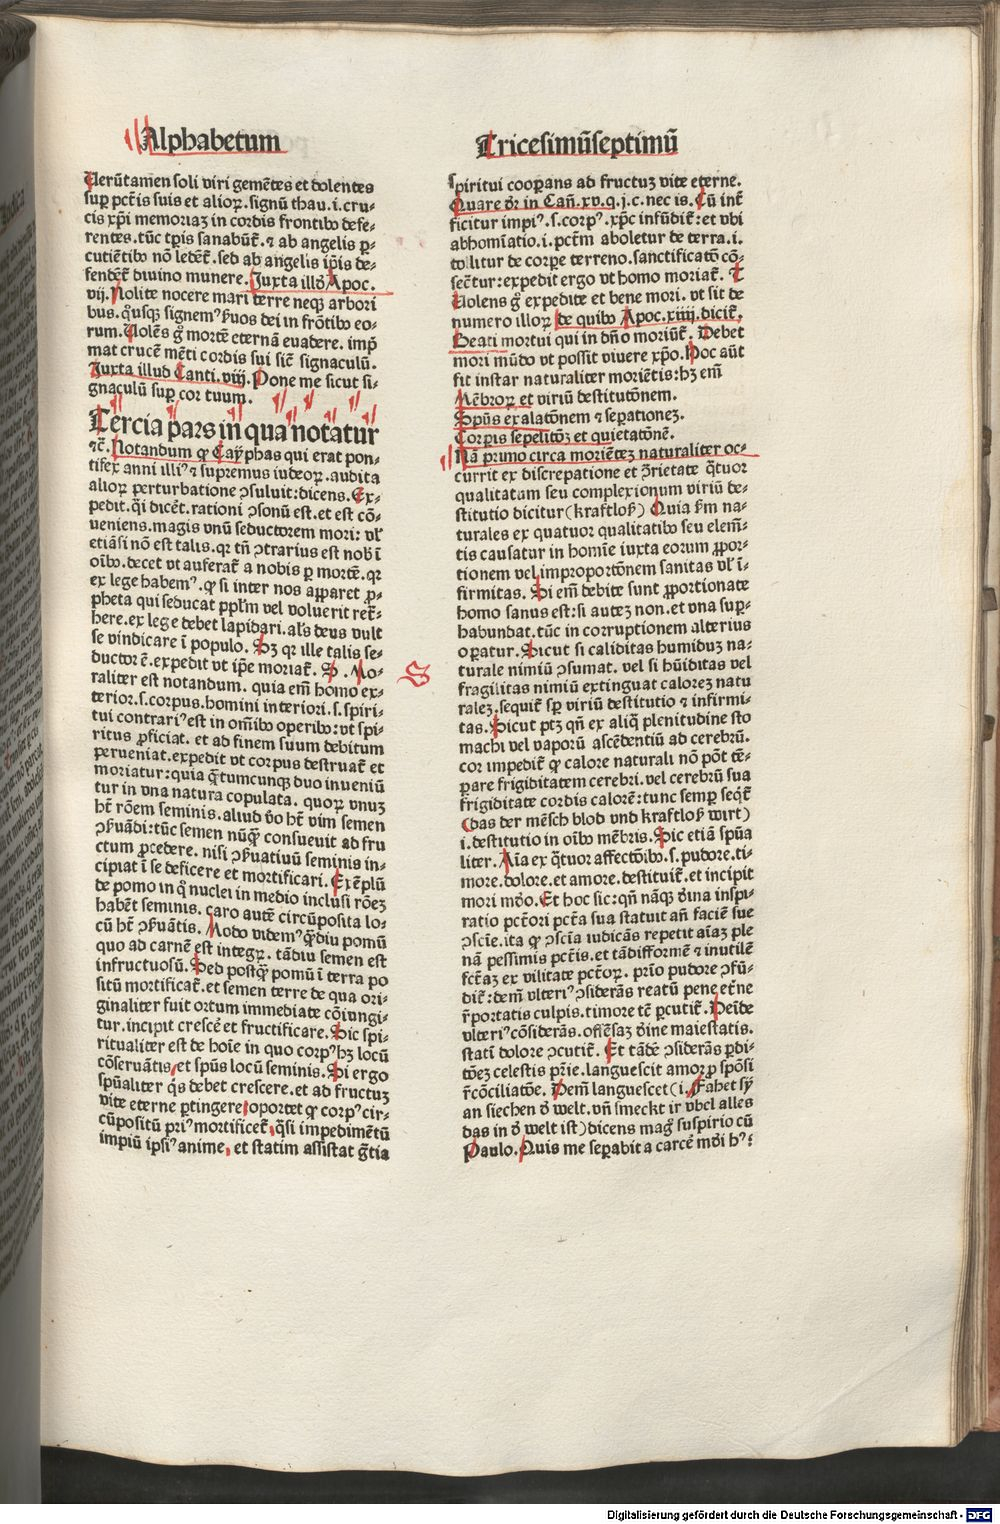 Alphabetum
Tricesimūseptimū
Uerūtamen soli viri gemētes et dolentes
suꝑ pctīs suis et alioꝝ. signū thau .i. cru-
cis xp̄i memoriaꝫ in cordis frontibꝰ defe-
rentes. tūc tꝑis sanabūt̄. ⁊ ab angelis ꝑ-
cutiētibꝰ nō ledēt̄. sed ab angelis ip̄is de-
fendēt̄ diuino munere. Juxta illđ Apoc.
vij. Nolite nocere mari terre neqꝫ arbori
bus. qͦusqꝫ signemꝰ ẜuos dei in frōtibꝰ eo-
rum. Uolēs gͦ mortē eternā euadere. imp̄
mat crucē mēti cordis sui sic̄ signaculū.
Juxta illud Canti. viij. Pone me sicut si-
gnaculū suꝑ cor tuum.
Tercia pars in qua notatur
⁊c̄. Notandum ꝙ Cayphas qui erat pon-
tifex anni illiꝰ ⁊ supremus iudeoꝝ. audita
alioꝝ perturbatione ꝯsuluit: dicens. Ex-
pedit. q̄i dicēt. rationi ꝯsonū est. et est cō-
ueniens. magis vnū seductorem mori: vl̄
etiāsi nō est talis. qꝛ tn̄ ꝯtrarius est nob̄ ī
oībꝰ. decet vt auferat̄ a nobis ꝑ mortē. qꝛ
ex lege habemꝰ. ꝙ si inter nos apparet ꝓ-
pheta qui seducat pplm̄ vel voluerit ret̄-
here. ex lege debet lapidari. al̄s deus vult
se vindicare ī populo. Sꝫ qꝛ ille talis se-
ductor ē. expedit vt ip̄e moriat̄. S. Mo-
raliter est notandum. quia em̄ homo ex-
terior. s. corpus. homini interiori. s. spiri-
tui contrariꝰ est in om̄ibꝰ operibꝰ: vt spi-
ritus ꝓficiat. et ad finem suum debitum
perueniat. expedit vt corpus destruat̄ et
moriatur: quia qͣtumcunqꝫ duo inueniū
tur in vna natura copulata. quoꝝ vnuꝫ
hꝫ rōem seminis. aliud v̄o hꝫ vim semen
ꝯẜuādi: tūc semen nūqꝫ consueuit ad fru
ctum ꝓcedere. nisi ꝯẜuatiuū seminis in-
cipiat ī se deficere et mortificari. Exēplū
de pomo in qͦ nuclei in medio inclusi rōeꝫ
habēt seminis. caro autē circūposita lo-
cū hꝫ ꝯẜuātis. Modo videmꝰ qͣdiu pomū
quo ad carnē est integꝝ. tādiu semen est
infructuosū. Sed postqͣ pomū ī terra po
situ mortificat̄. et semen terre de qua ori-
ginaliter fuit ortum immediate cōiungi-
tur. incipit crescē et fructificare. Sic spi-
ritualiter est de hoīe in quo corpꝰ hꝫ locū
cōseruātis, et spūs locū seminis. Si ergo
spūaliter qͥs debet crescere. et ad fructuꝫ
vite eterne ꝑtingere, oportet ꝙ corpꝰ cir-
cūpositū priꝰ mortificet̄, qͣsi impedimētū
impiū ipsiꝰ anime, et statim assistat gͣtia
spiritui cooꝑans ad fructuꝫ vite eterne.
Quare d̄r in Can̄. xv. q. j. c. nec is. Cū int̄
ficitur impiꝰ. s. corpꝰ. xp̄c infūdit̄: et vbi
abhomīatio. i. pctm̄ aboletur de terra. i.
tollitur de corpe terreno. sanctificatō cō-
seq̄tur: expedit ergo vt homo moriat̄. T
Uolens gͦ expedite et bene mori. vt sit de
numero illoꝝ de quibꝰ Apoc. xiiij. dicit̄.
Beati mortui qui in dn̄o moriūt̄. Debet
mori mūdo vt possit viuere xp̄o. Hoc aūt
fit instar naturaliter moriētis: hꝫ em̄
Mēbroꝝ et viriū destitutōnem.
Spūs exalatōnem ⁊ seꝑationeꝫ.
Corpis sepelitōꝫ et quietatōnē.
Nā primo circa moriētes naturaliter oc-
currit ex discrepatione et ꝯrietate qͣtuor
qualitatum seu complexionum viriū de-
stitutio dicitur (kraftloß) Quia ẜm na-
turales ex quatuor qualitatibꝰ seu elem̄-
tis causatur in homīe iuxta eorum ꝓpor-
tionem vel improportōnem sanitas vl̄ ī-
firmitas. Si em̄ debite sunt ꝓportionate
homo sanus est: si auteꝫ non. et vna suꝑ-
habundat. tūc in corruptionem alterius
oꝑatur. Sicut si caliditas humiduꝫ na-
turale nimiū ꝯsumat. vel si hūiditas vel
fragilitas nimiū extinguat caloreꝫ natu
raleꝫ. sequit̄ sꝑ viriū destitutio ⁊ infirmi-
tas. Sicut ptꝫ qn̄ ex aliqͣ plenitudine sto
machi vel vaporū ascēdentiū ad cerebrū.
cor impedit̄ ꝙ calore naturali nō pōt tē-
ꝑare frigiditatem cerebri. vel cerebrū sua
frigiditate cordis calorē: tunc semꝑ seqͥt̄
(das der mēsch blod vnd kraftloß wirt)
i. destitutio in oībꝰ mēbris. Sic etiā spūa
liter. Aīa ex qͣtuor affectōibꝰ. s. pudore. ti-
more. dolore. et amore. destituit̄. et incipit
mori mūdo. Et hoc sic: qn̄ nāqꝫ diuina inspi-
ratio pctōri pctā sua statuit an̄ faciē sue
ꝯscīe. ita ꝙ ꝯscīa iudicās repetit aīaꝫ ple
nā pessimis pctīs. et tādifformē ⁊ inutilē
fct̄aꝫ ex vilitate pctōꝝ. prīo pudore ꝯfū-
dit̄: dem̄ vlteriꝰ ꝯsiderās reatū pene et̄ne
r̄portatis culpis. timore tē ꝑcutit̄. Deīde
vlteriꝰ cōsiderās. offēsaꝫ diuine maiestatis.
statī dolore ꝯcutit̄. Et tādē ꝯsiderās ꝑdi-
tōeꝫ celestis prīe. languescit amoꝝ ꝓ spōsi
r̄cōciliatōe. Dem̄ languescet (i. Fahet sy
an siechen ď welt. vn̄ smeckt ir vbel alles
das in ď welt ist) dicens magͦ suspirio cū
Paulo. Quis me seꝑabit a carcē mōi hꝰ:
S
Digitalisierung gefördert durch die Deutsche Forschungsgemeinschaft - DFG